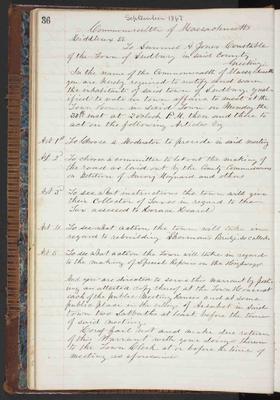 36
September 1867
Commonwealth of Massachusetts
Middlesex ss
To Samuel A Jones Constable
of the Town of Sudbury in said County
Greeting
In the name of the Commonwealth of Massachusetts
you are hereby required to notify and warn
the inhabitants of said town of Sudbury quali-
fied to vote in town affairs to meet at the
Town House in said Town on Monday the
at 2 o'clock P.M. then and there to
act on the following Articles viz
Art 1st To Choose a Moderator to preside in said meeting
Art 2 To choose a committee to let out the making of
the road as laid out by the County Commissioners
on petition of Maynard and others
Art 3 To see what instructions the town will give
their Collector of Taxes in regard to the
Tax assessed to
Art 4 To see what action the town will take in
regard to rebuilding Sherman's Bridge so called
Art 5 To see what action the Town will take in regard
to the making of Special Repairs on the Highways
And you are directed to serve this warrant by post-
ing an attested copy thereof at the Town House and
each of the public Meeting houses and at some
public place in the village of Assabet in said
town two Sabbaths at least before the time
of said meeting
Hereof fail not and make due return
of this Warrant with your doings thereon
to the Town Clerk at or before the time of
meeting as aforesaid